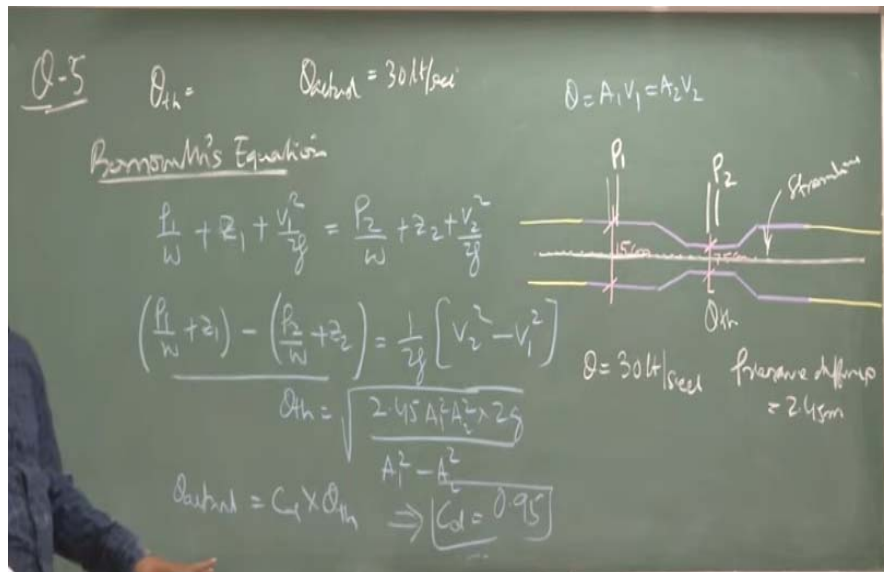 Q-5
Q_th = Q_actual = 30 lt/sec
Q = A₁V₁ = A₂V₂
Bernoulli's Equation
P₁/w + z₁ + V₁²/2g = P₂/w + z₂ + V₂²/2g
(P₁/w + z₁) - (P₂/w + z₂) = 1/2g [V₂² - V₁²]
Q_th = √(2.45 A₁² A₂² × 2g / A₁² - A₂²)
Q_actual = C_d × Q_th ⇒ C_d = 0.95
P₁
P₂
Streamline
15cm
7.5cm
Q_th
Q = 30 lt/sec Pressure difference
= 2.45m